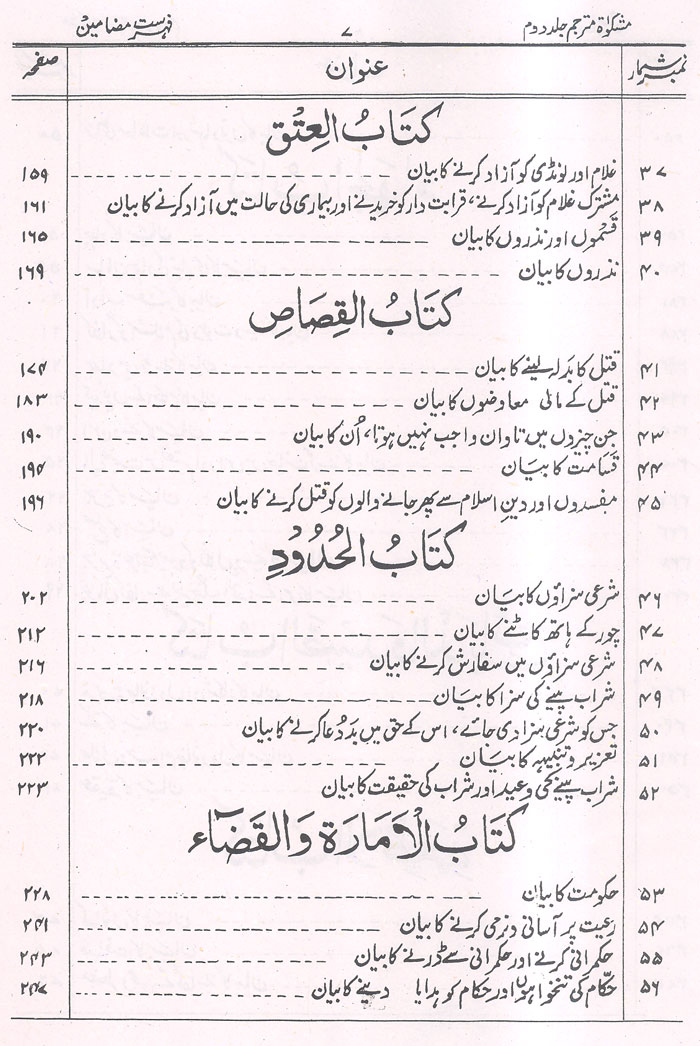 مشکوٰۃ مترجم جلد دوم ۷ فہرست مضامین
نمبر شمار عنوان صفحہ
كتَابُ العِتْق
۳۷ غلام اور لونڈی کو آزاد کرنے کا بیان ۱۵۹
۳۸ مشترک غلام کو آزاد کرنے، قرابت دار کو خریدنے اور بیماری کی حالت میں آزاد کرنے کا بیان ۱۶۱
۳۹ قسموں اور نذروں کا بیان ۱۶۵
۴۰ نذروں کا بیان ۱۶۹
كتَابُ القِصَاصِ
۴۱ قتل کا بدلہ لینے کا بیان ۱۷۴
۴۲ قتل کے مالی معاوضوں کا بیان ۱۸۳
۴۳ جن چیزوں میں تاوان واجب نہیں ہوتا، اُن کا بیان ۱۹۰
۴۴ قسامت کا بیان ۱۹۴
۴۵ مفسدوں اور دینِ اسلام سے پھر جانے والوں کو قتل کرنے کا بیان ۱۹۶
كتَابُ الحُدُوْدِ
۴۶ شرعی سزاؤں کا بیان ۲۰۲
۴۷ چور کے ہاتھ کاٹنے کا بیان ۲۱۲
۴۸ شرعی سزاؤں میں سفارش کرنے کا بیان ۲۱۶
۴۹ شراب پینے کی سزا کا بیان ۲۱۸
۵۰ جس کو شرعی سزا دی جائے، اس کے حق میں بددُعا کرنے کا بیان ۲۲۰
۵۱ تعزیر و تنبیہہ کا بیان ۲۲۲
۵۲ شراب پینے کی وعید اور شراب کی حقیقت کا بیان ۲۲۳
كتَابُ الْاَمَارَة وَالقَضَاء
۵۳ حکومت کا بیان ۲۲۸
۵۴ رعیت پر آسانی و نرمی کرنے کا بیان ۲۴۱
۵۵ حکمرانی کرنے اور حکمرانی سے ڈرنے کا بیان ۲۴۳
۵۶ حکّام کی تنخواہوں اور حکام کو ہدایا دینے کا بیان ۲۴۷